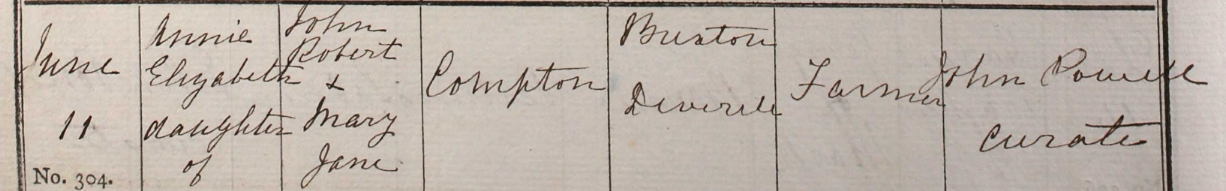 June
11
No. 304.
Annie
Elizabeth
daughter
of
John
Robert
+
Mary
Jane
Compton
Brixton
Deverile
Farmer
John Powell
Curate